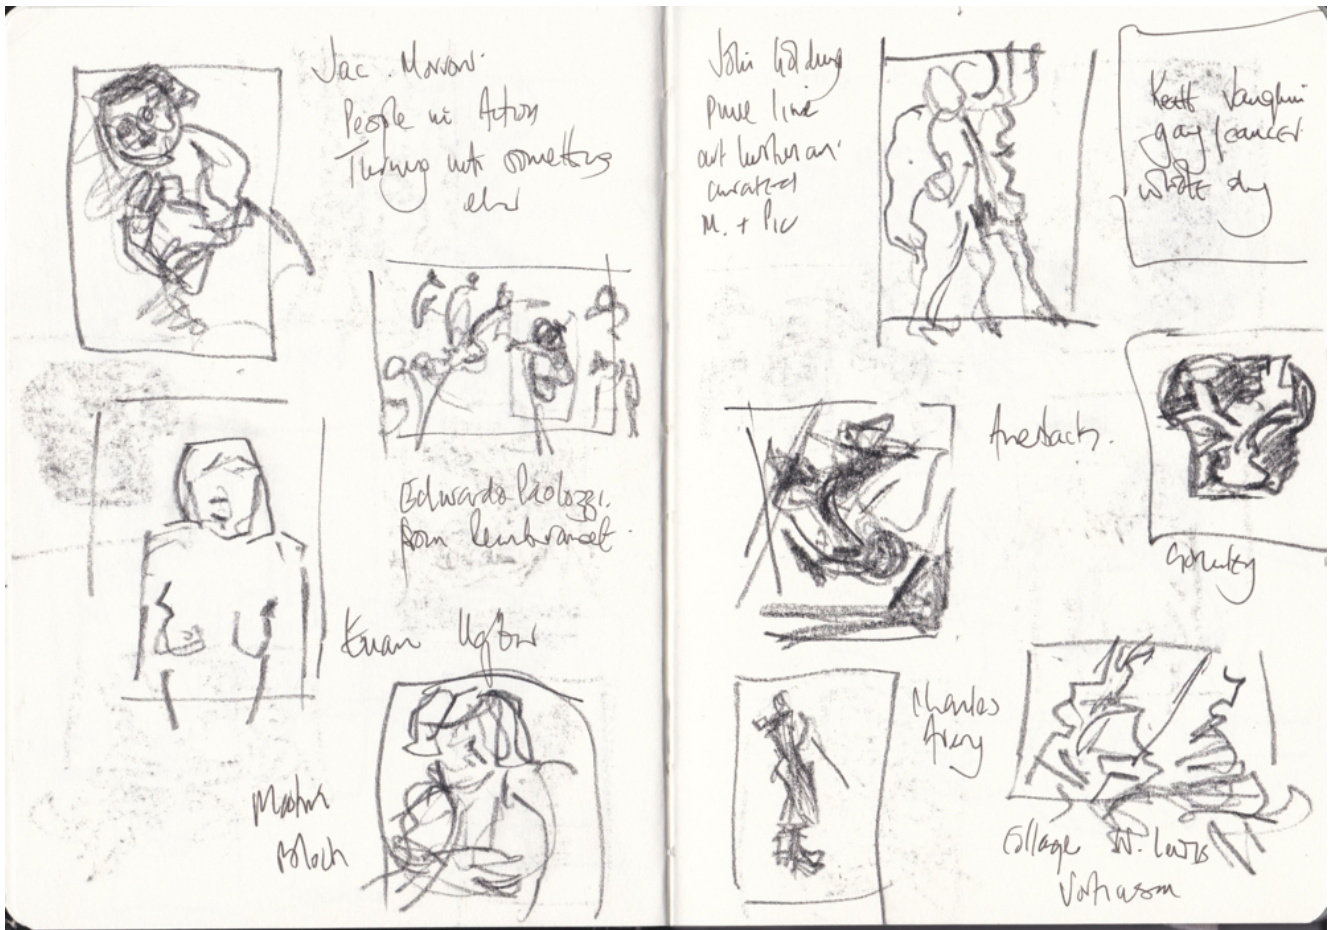 Jac.
People in Action
Turning into something
else
Edwardo Paolozzi.
from Rembrandt.
Euan Uglow
Martin
Bloch
John Golding
pure line
art historian.
curated
M. + Pic
Keith Vaughan
gay / cancer
wrote
Auerbach.
Gormley
Charles
Avery
Collage W. Lewis
Vorticism